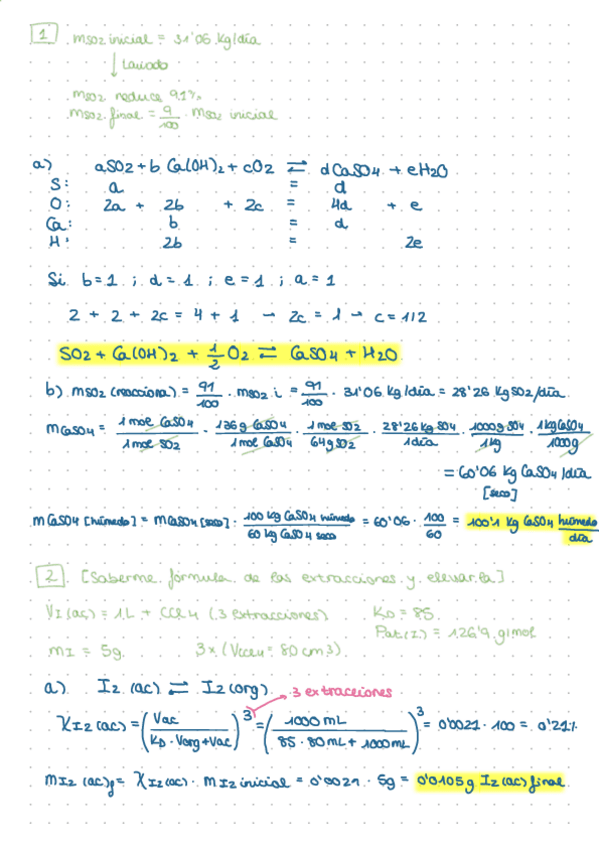 1 mso2 inicial = 31'06 Kg/día
↓ Lavado
mso2 reduce 91%
mso2 final = 9/100 · mso2 inicial
a) aSO2 + b Ca(OH)2 + cO2 ⇌ dCaSO4 + eH2O
S: a = d
O: 2a + 2b + 2c = 4d + e
Ca: b = d
H: 2b = 2e
Si b=1 ; d=1 ; e=1 ; a=1
2 + 2 + 2c = 4 + 1 → 2c = 1 → c = 1/2
SO2 + Ca(OH)2 + 1/2 O2 ⇌ CaSO4 + H2O
b) mso2 (reacciona) = 91/100 · mso2 i = 91/100 · 31'06 Kg/día = 28'26 Kg SO2/día
mCaSO4 = 1 mol CaSO4/1 mol SO2 · 136g CaSO4/1 mol CaSO4 · 1 mol SO2/64g SO2 · 28'26 kg SO4/1 día · 1000g SO4/1 kg · 1 kg CaSO4/1000g
= 60'06 Kg CaSO4/día
[seco]
mCaSO4 [húmedo] = mCaSO4 [seco] · 100 kg CaSO4 húmedo/60 kg CaSO4 seco = 60'06 · 100/60 = 100'1 Kg CaSO4 húmedo/día
2 [Saberme fórmula de las extracciones y elevarla]
VI(ac) = 1L + CCl4 (3 extracciones) KD = 85
Pat(I) = 126'9 g/mol
mI = 5g 3x (VCCl4 = 80 cm3)
a) I2 (ac) ⇌ I2 (org) 3 extracciones
XI2(ac) = (Vac/KD · Vorg + Vac)^3 = (1000 mL/85 · 80 mL + 1000 mL)^3 = 0'0021 · 100 = 0'21%
mI2 (ac)f = XI2(ac) · mI2 inicial = 0'0021 · 5g = 0'0105g I2 (ac) final